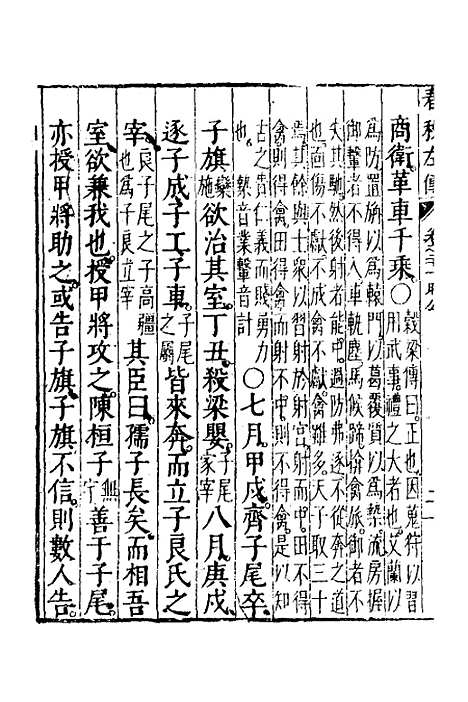 春秋左傳
商衛革車千乘○穀梁傳曰正也因蒐狩以習
用武事禮之大者也艾蘭以
為防置旃以為轅門以葛覆質以為槷流房握
御轚者不得入車軌塵馬候蹄揜禽旅御者不
失其馳然後射者能中過防弗逐不從奔之道
也面傷不獻不成禽不獻禽雖多天子取三十
焉其餘與士衆以習射於射宮射而中田不得
禽則得禽田得禽而射不中則不得禽是以知
古之貴仁義而賤勇力
也 槷音業轚音計○七月甲戌齊子尾卒
子旗欒施欲治其室丁丑殺梁嬰子尾家宰八月庚戌
逐子成子工子車子尾之屬皆來奔而立子良氏之
宰良子尾之子高彊也爲子良立宰其臣曰孺子長矣而相吾
室欲兼我也授甲將攻之陳桓子無宇善于子尾
亦授甲將助之或告子旗子旗不信則數人告